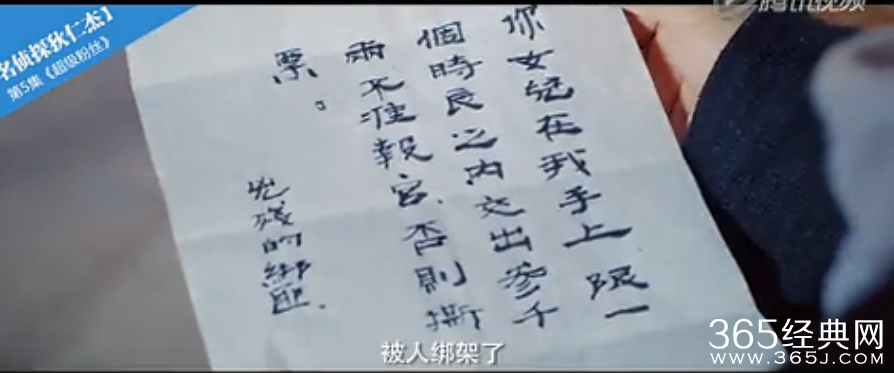 名侦探狄仁杰】
第5集《超级粉丝》
腾讯视频
你女兒在我手上 限一
個時良之內交出參千
兩不准報官.否則撕
票。
兇殘的綁匪.
被人绑架了
365经典网
WWW.365J.COM